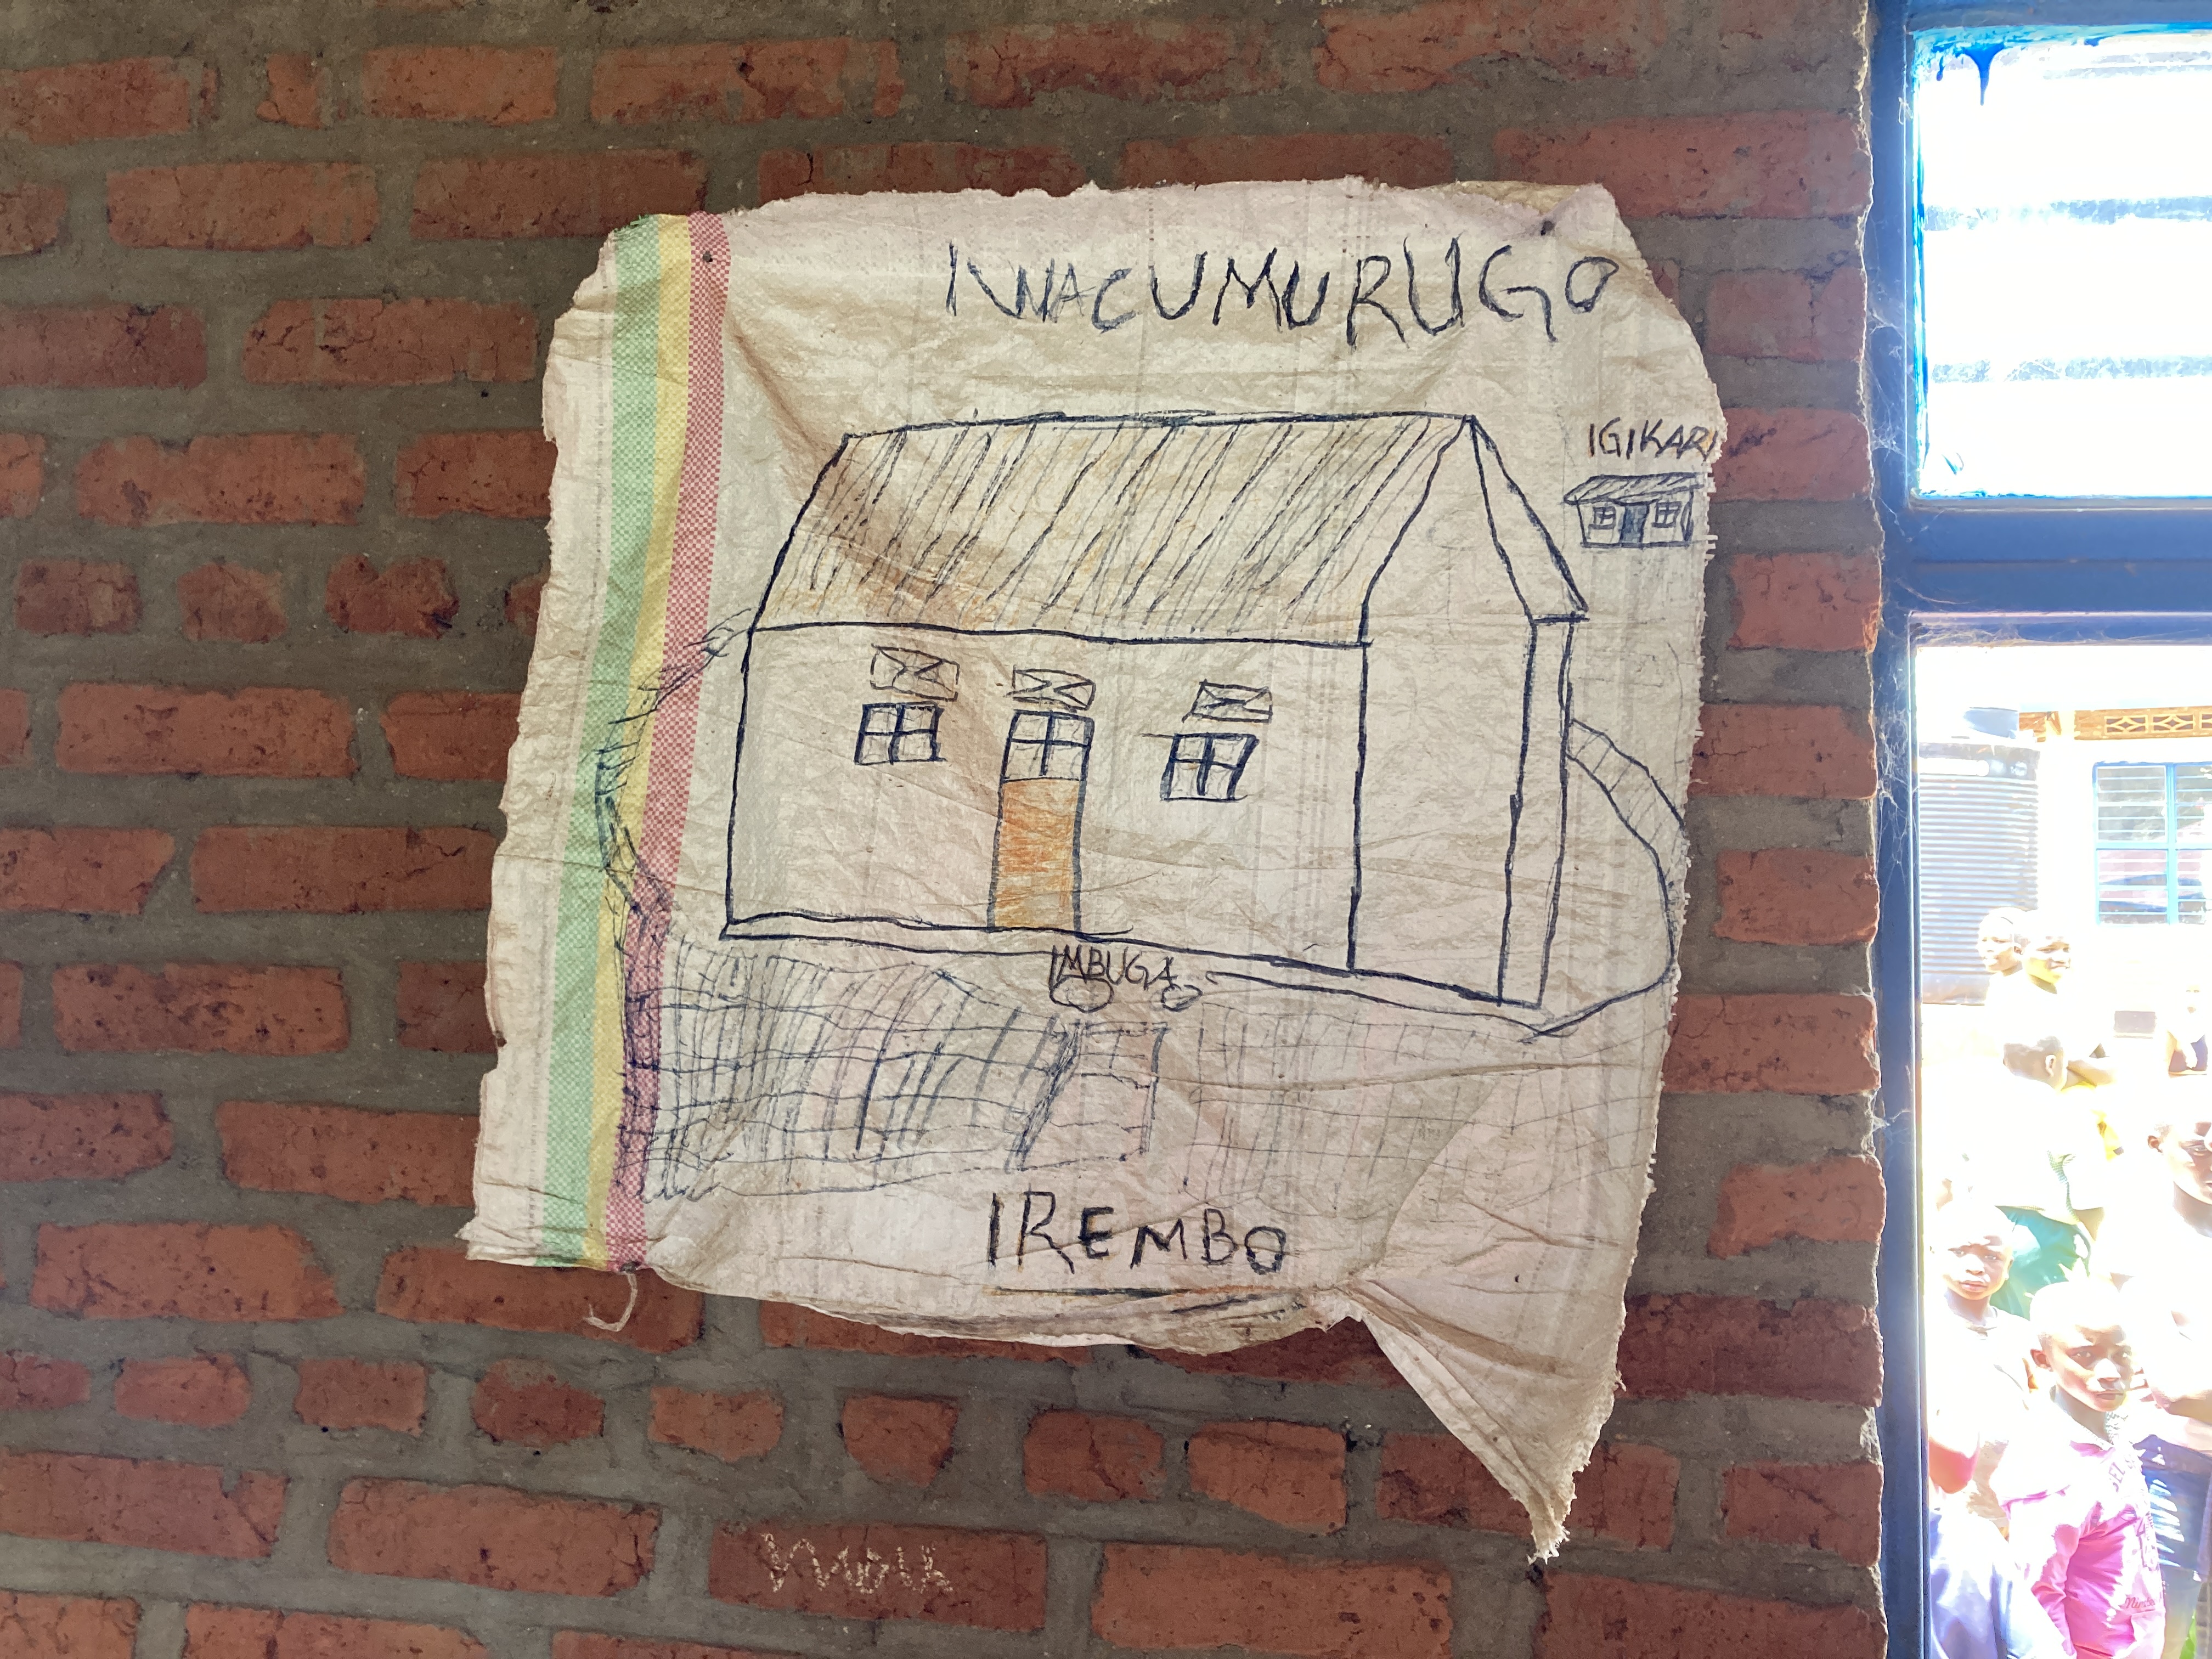 IWACUMURUGO
IGIKARI
IMBUGA
IREMBO